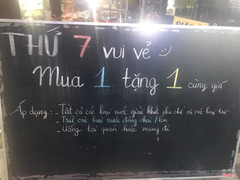 THỨ 7 vui vẻ
Mua 1 tặng 1 cùng giá
Áp dụng: - Tất cả các loại nước giải khát pha chế và các loại trà
- Trừ các loại nước đóng chai / lon
- Uống tại quán hoặc mang đi